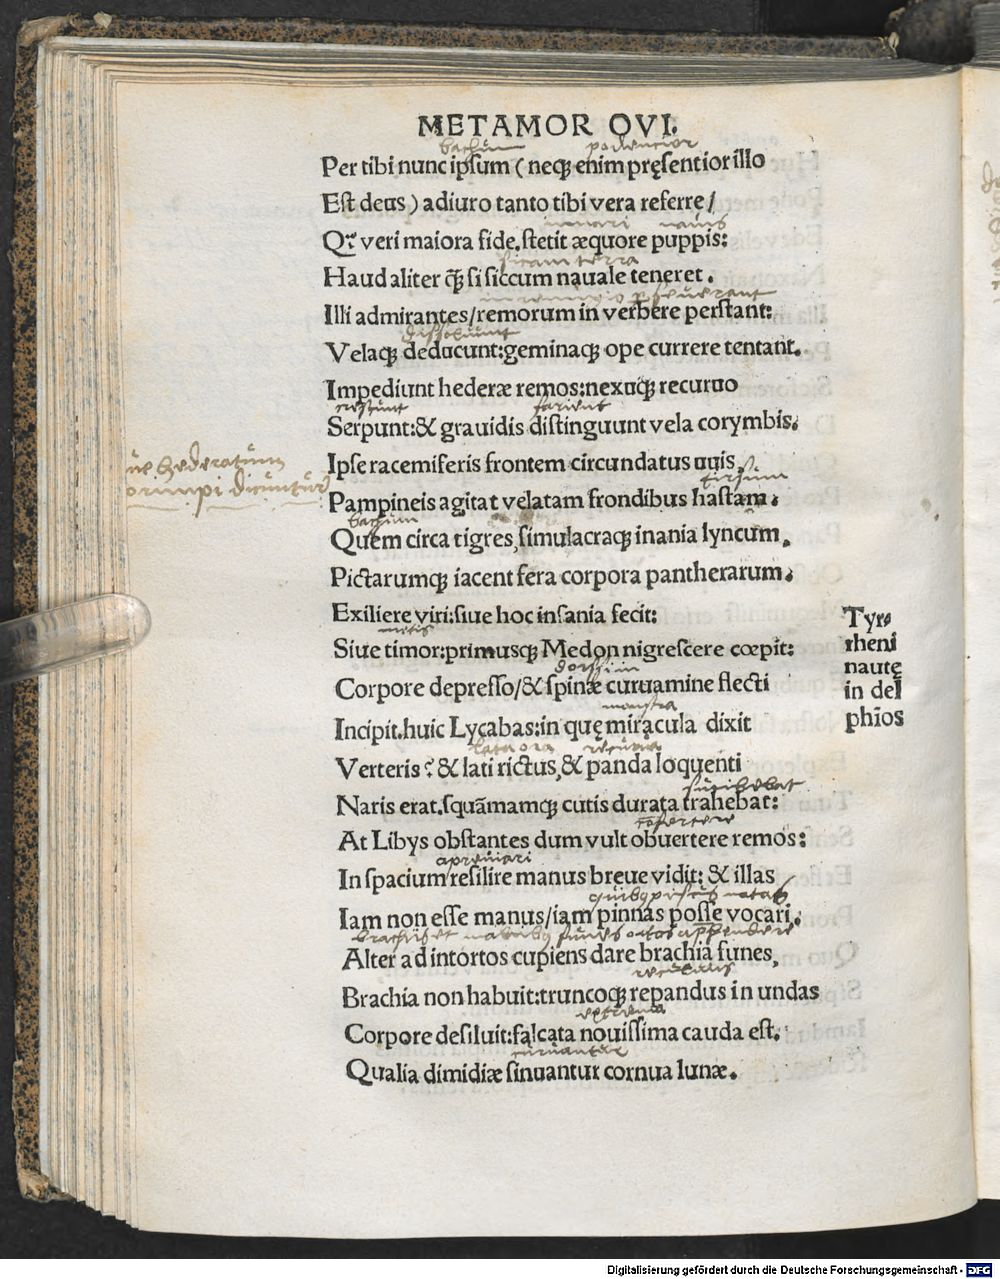 METAMOR OVI.
bachum
Per tibi nunc ipsum ( neqꝫ enim pręsentior illo
Est deus ) adiuro tanto tibi vera referre /
navis
Qꝛ veri maiora fide. stetit æquore puppis:
sicam terra
Haud aliter q̃ꝫ si siccum nauale teneret .
Illi admirantes / remorum in verbere perstant:
dissoluunt
Velaqꝫ deducunt: geminaqꝫ ope currere tentant.
Impediunt hederæ remos: nexuqꝫ recuruo
Serpunt: & grauidis distinguunt vela corymbis.
ue hederatum
Ipse racemiferis frontem circundatus uuis,
dicuntur
tirsum
Pampineis agitat velatam frondibus hastam.
bachum
Quem circa tigres, simulacraqꝫ inania lyncum.
Pictarumqꝫ iacent fera corpora pantherarum.
Exiliere viri: siue hoc insania fecit:
metis
Siue timor: primusqꝫ Medon nigrescere cœpit:
Corpore depresso / & spinæ curuamine flecti
monstra
Incipit. huic Lycabas: in quę miracula dixit
lata ora
Verteris ? & lati rictus, & panda loquenti
Naris erat. squãmamqꝫ cutis durata trahebat:
At Libys obstantes dum vult obuertere remos:
In spacium resilire manus breue vidit: & illas
Iam non esse manus / iam pinnas posse vocari.
Alter ad intortos cupiens dare brachia funes,
Brachia non habuit: truncoqꝫ repandus in undas
extrema
Corpore desiluit: falcata nouissima cauda est.
curuantur
Qualia dimidiæ sinuantur cornua lunæ.
Tyr=
rheni
nautę
in del
phĩos
Digitalisierung gefördert durch die Deutsche Forschungsgemeinschaft - DFG